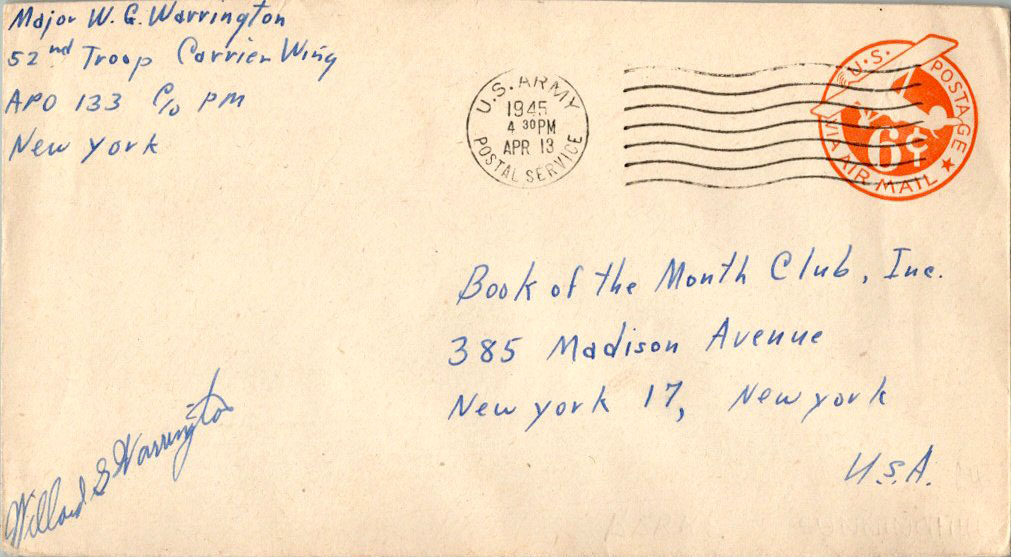 Major W. G. Warrington
52nd Troop Carrier Wing
APO 133 c/o PM
New York
U.S. ARMY
1945
4 30 PM
APR 13
POSTAL SERVICE
U.S. POSTAGE
6¢
VIA AIR MAIL
Book of the Month Club, Inc.
385 Madison Avenue
New York 17, New York
U.S.A.
Willard G Warrington